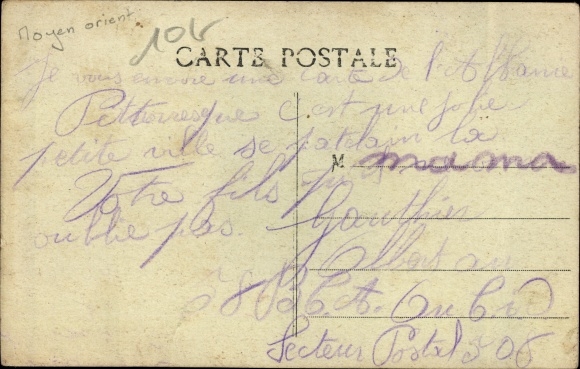 Moyen orient
10f
CARTE POSTALE
Je vous envoie une carte de l'Albanie
Pittoresque c'est une jolie
petite ville se patelain là
M mama
Votre fils
oublie pas.
Gauthier
Albert au
58 B.C.A.
Secteur Postal 506